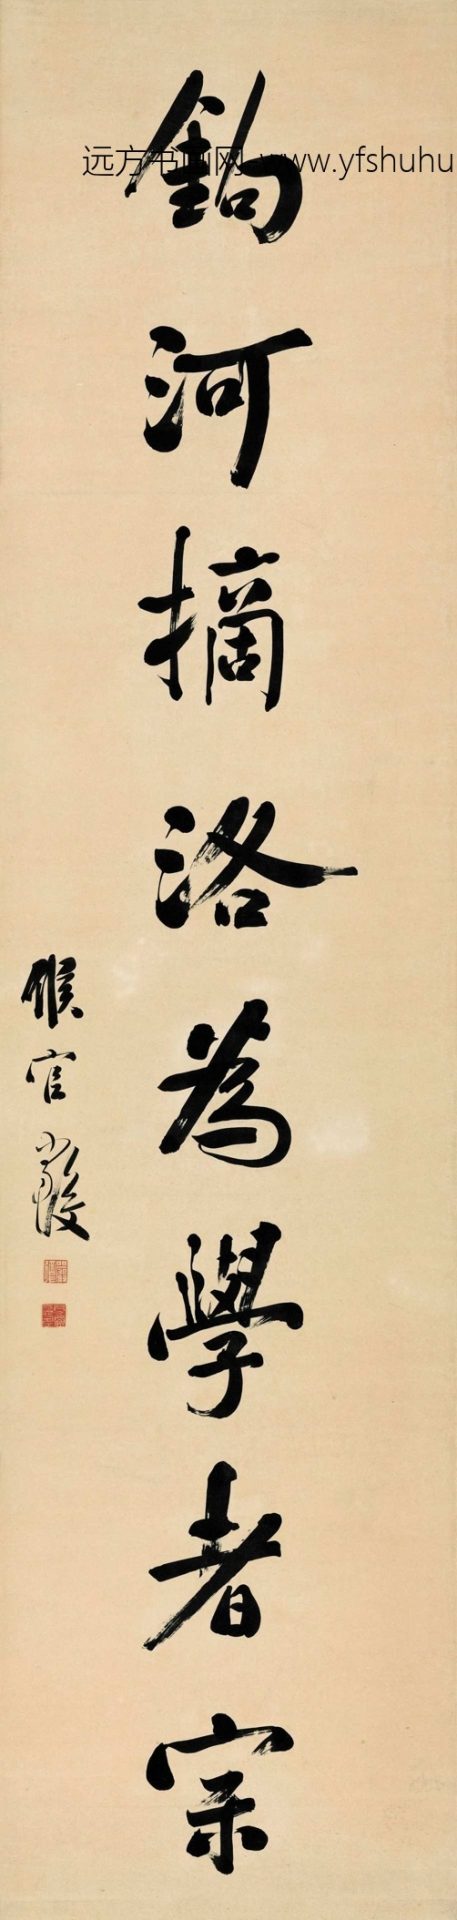 远方书画网 www.yfshuhu
鉤河摘洛為學者宗
候官嚴復